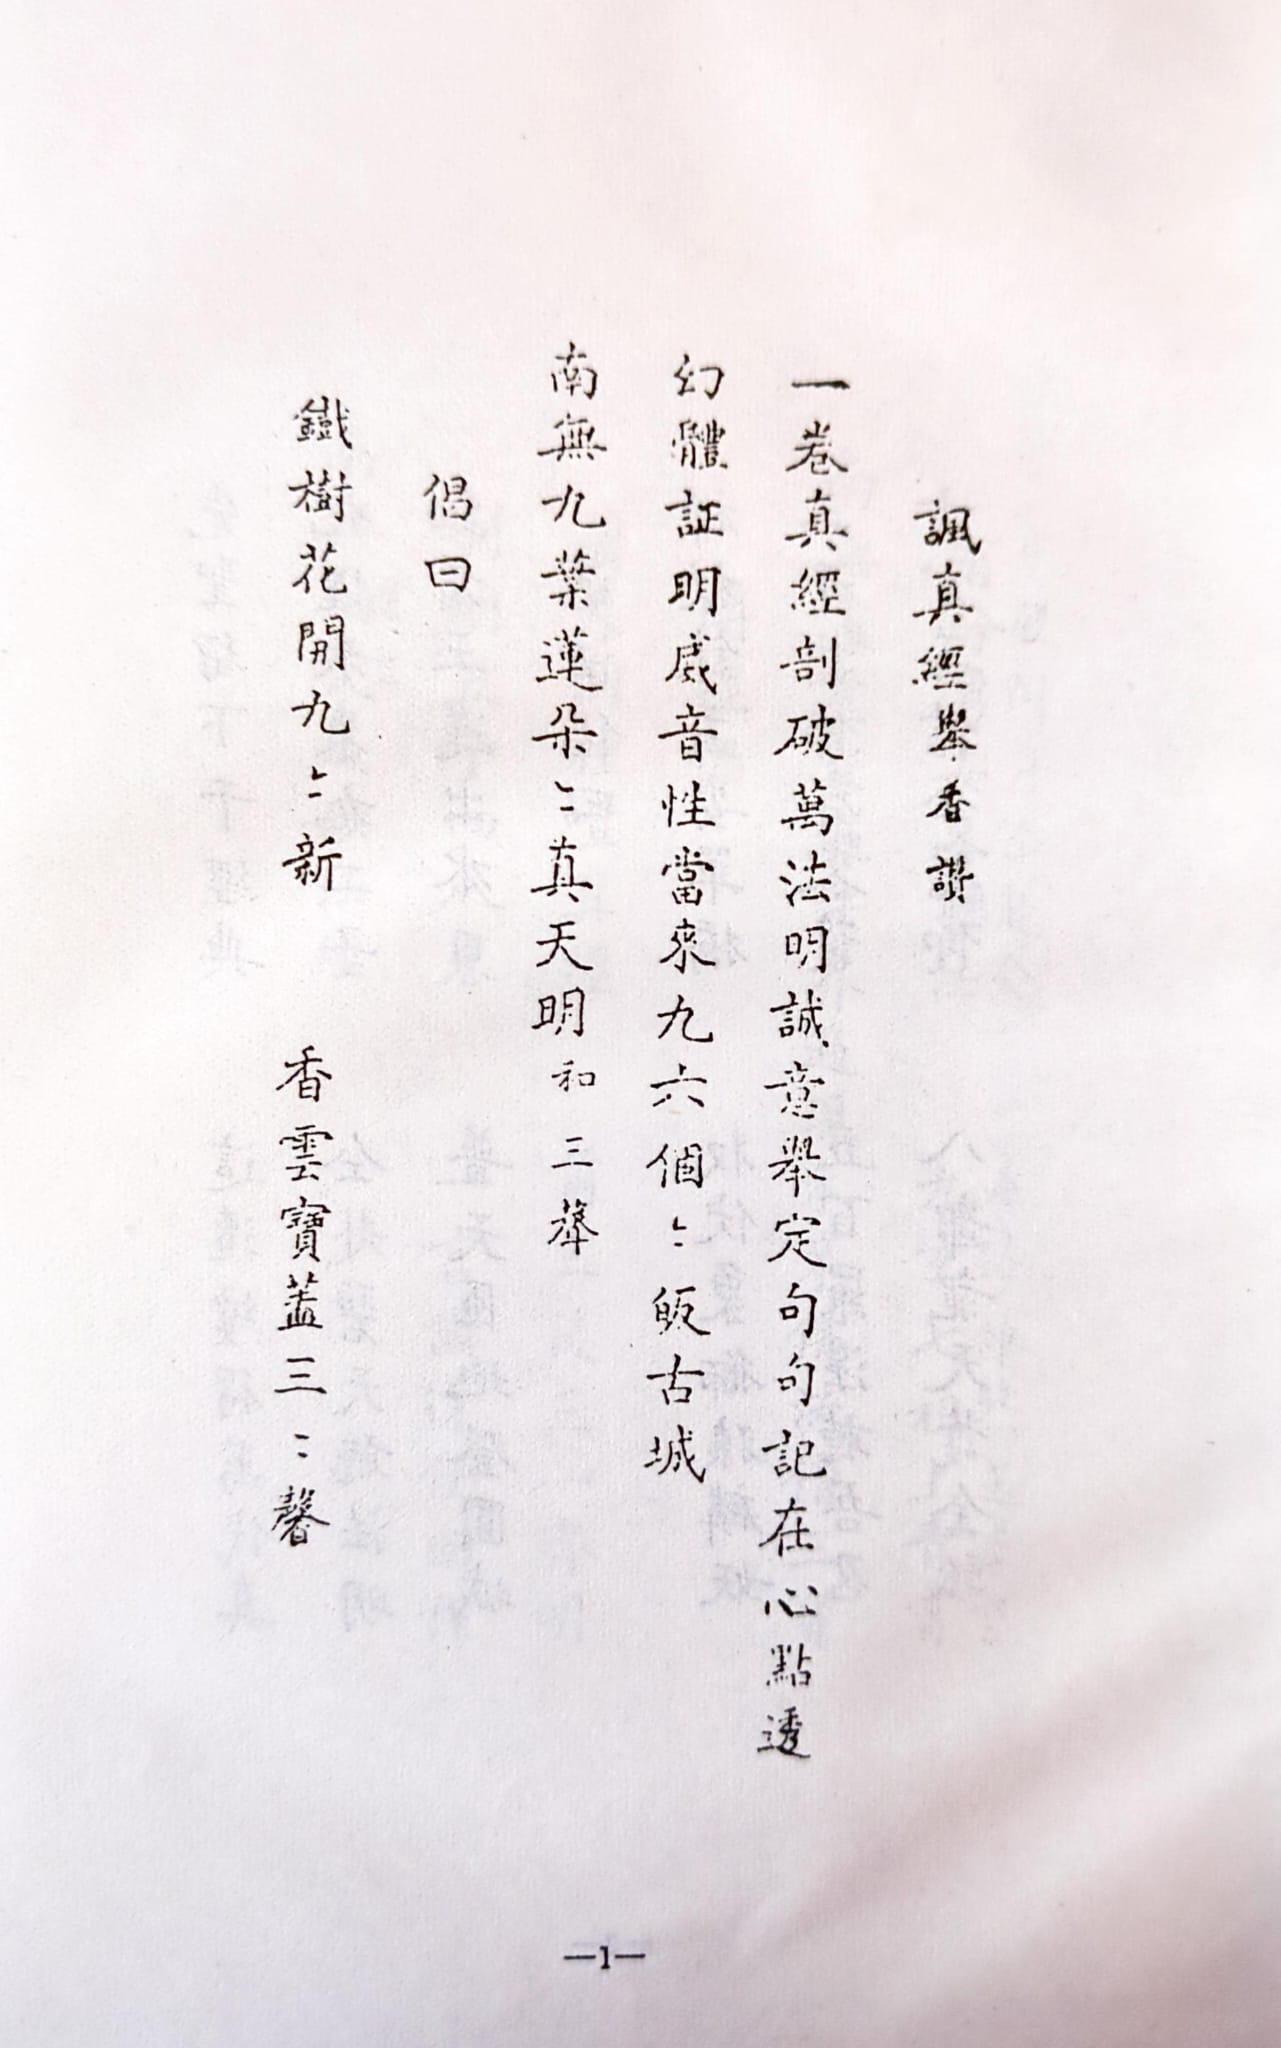 諷真經舉香讚
一卷真經剖破萬法明誠意舉定句句記在心點透
幻體証明威音性當來九六個〻皈古城
南無九葉蓮朵〻真天明和三舉
倡曰
鐵樹花開九〻新 香雲寶蓋三〻馨
—1—